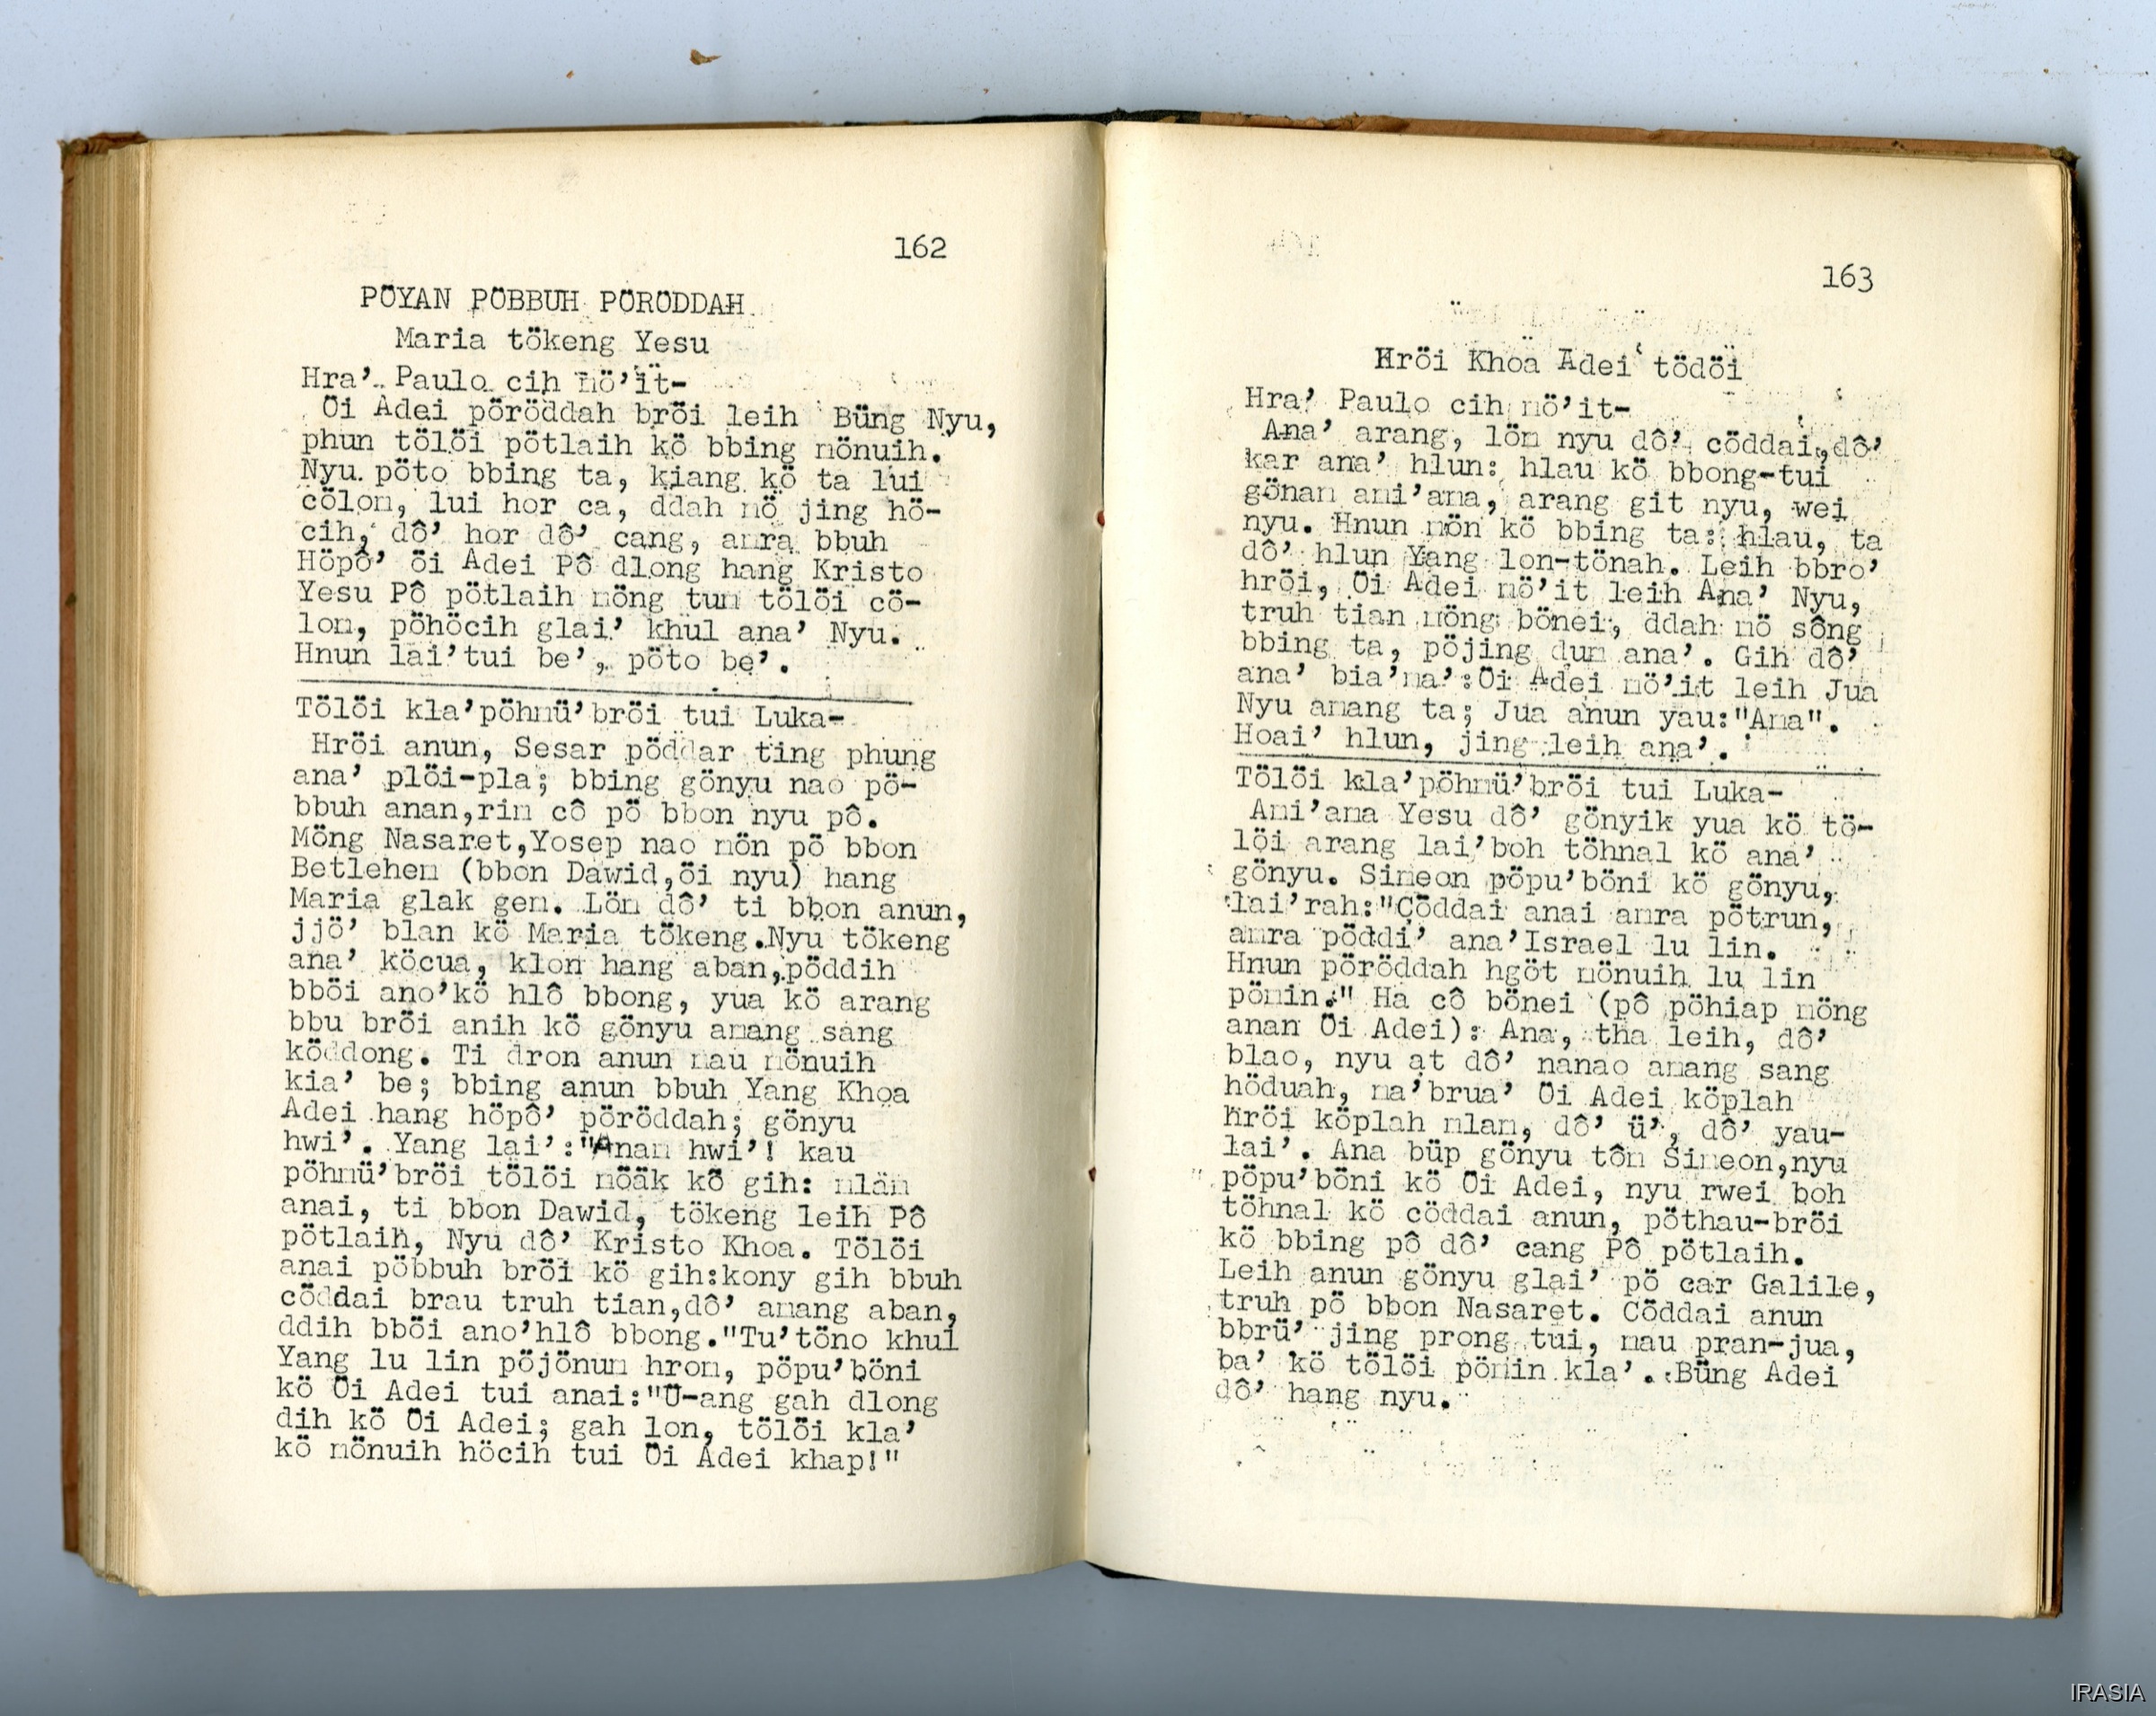 162
PÖYAN PÖBBUH PÖRÖDDAH
Maria tökeng Yesu
Hra' Paulo cih mö'it-
Öi Adei pöröddah bröi leih Büng Nyu,
phun tölöi pötlaih kö bbing mönuih.
Nyu pöto bbing ta, kiang kö ta lui
cölom, lui hor ca, ddah mö jing hö-
cih, dô' hor dô' cang, amra bbuh
Höpô' öi Adei Pô dlong hang Kristo
Yesu Pô pötlaih möng tum tölöi cö-
lom, pöhöcih glai' khul ana' Nyu.
Hnum lai'tui be', pöto be'.
Tölöi kla'pöhmü'bröi tui Luka-
Hröi anun, Sesar pöddar ting phung
ana' plöi-pla; bbing gönyu nao pö-
bbuh anan,rim cô pö bbon nyu pô.
Möng Nasaret,Yosep nao mön pö bbon
Betlehem (bbon Dawid,öi nyu) hang
Maria glak gem. Löm dô' ti bbon anun,
jjö' blan kö Maria tökeng.Nyu tökeng
ana' köcua, klom hang aban,pöddih
bböi ano'kö hlô bbong, yua kö arang
bbu bröi anih kö gönyu amang sang
köddong. Ti dron anun mau mönuih
kia' be; bbing anun bbuh Yang Khoa
Adei hang höpô' pöröddah; gönyu
hwi'. Yang lai':"Anam hwi'! kau
pöhmü'bröi tölöi möäk kö gih: mlam
anai, ti bbon Dawid, tökeng leih Pô
pötlaih, Nyu dô' Kristo Khoa. Tölöi
anai pöbbuh bröi kö gih:kony gih bbuh
cöddai brau truh tian,dô' amang aban,
ddih bböi ano'hlô bbong."Tu'töno khul
Yang lu lin pöjönum hrom, pöpu'böni
kö Öi Adei tui anai:"Ü-ang gah dlong
dih kö Öi Adei; gah lon, tölöi kla'
kö mönuih höcih tui Öi Adei khap!"
163
Hröi Khoa Adei tödöi
Hra' Paulo cih mö'it-
Ana' arang, löm nyu dô' cöddai,dô'
kar ana' hlun: hlau kö bbong-tui
gönam ami'ama, arang git nyu, wei
nyu. Hnum mön kö bbing ta: hlau, ta
dô' hlun Yang lon-tönah. Leih bbro'
hröi, Öi Adei mö'it leih Ana' Nyu,
truh tian möng bönei, ddah mö sông
bbing ta, pöjing dum ana'. Gih dô'
ana' bia'ma':Öi Adei mö'it leih Jua
Nyu amang ta; Jua anun yau:"Ama".
Hoai' hlun, jing leih ana'.
Tölöi kla'pöhmü'bröi tui Luka-
Ami'ama Yesu dô' gönyik yua kö tö-
löi arang lai'boh töhnal kö ana'
gönyu. Simeon pöpu'böni kö gönyu,
lai'rah:"Cöddai anai amra pötrun,
amra pöddi' ana'Israel lu lin.
Hnum pöröddah hgöt mönuih lu lin
pömin." Ha cô bönei (pô pöhiap möng
anan Öi Adei): Ana, tha leih, dô'
blao, nyu at dô' nanao amang sang
höduah, ma'brua' Öi Adei köplah
hröi köplah mlam, dô' ü', dô' yau-
lai'. Ana büp gönyu tôm Simeon,nyu
pöpu'böni kö Öi Adei, nyu rwei boh
töhnal kö cöddai anun, pöthau-bröi
kö bbing pô dô' cang Pô pötlaih.
Leih anun gönyu glai' pö car Galile,
truh pö bbon Nasaret. Cöddai anun
bbrü' jing prong tui, mau pran-jua,
ba' kö tölöi pömin kla'. Büng Adei
dô' hang nyu.
IRASIA